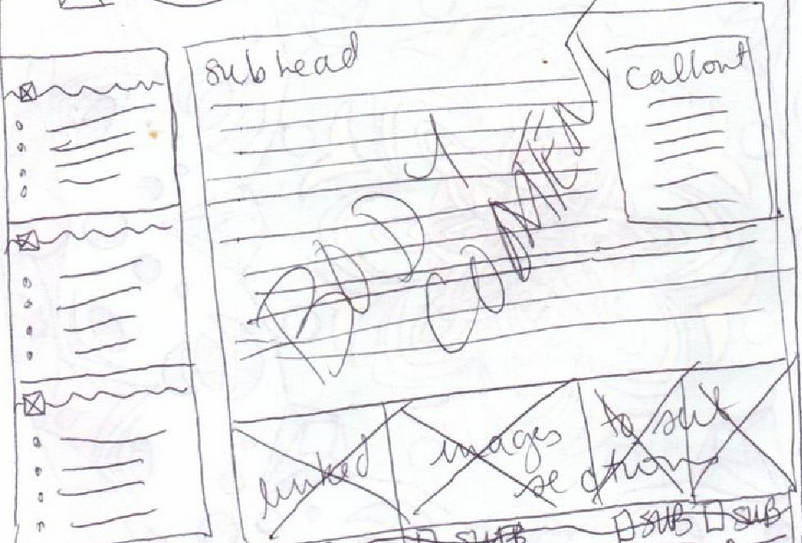 subhead
Callout
BODY
CONTEN
linked images to sub
sections
SUB SUB SUB